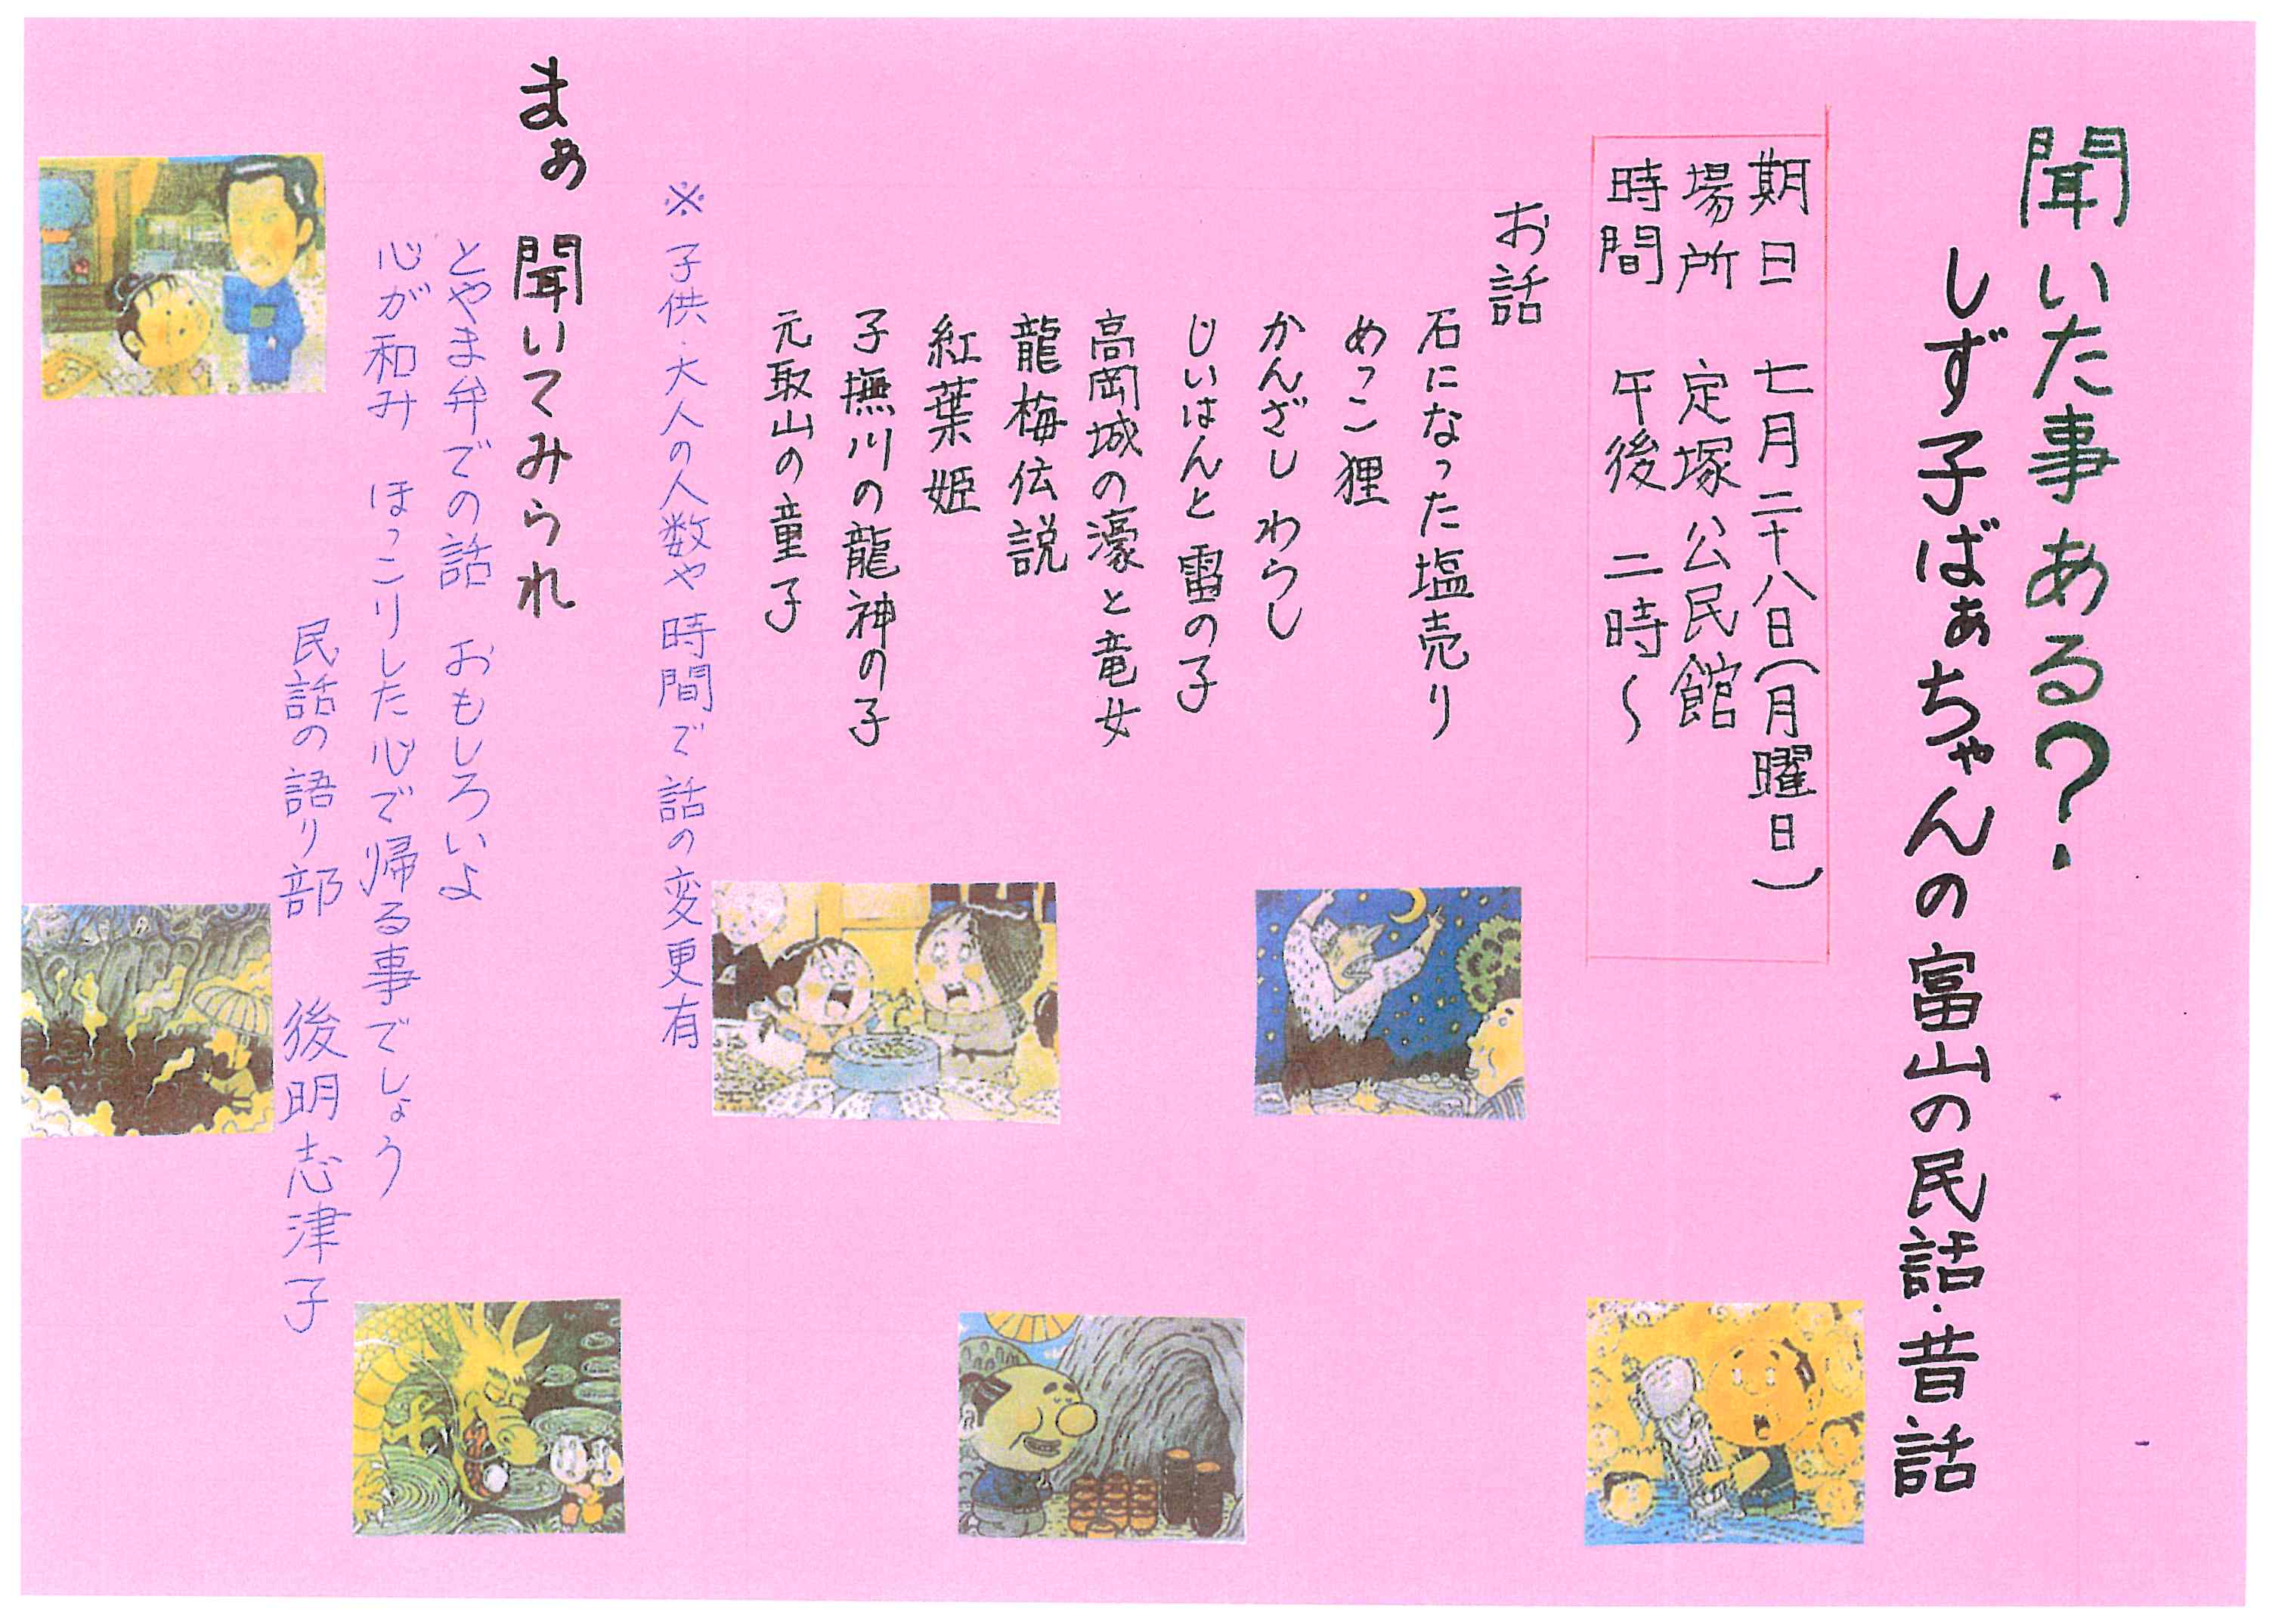 聞いた事ある?
しず子ばぁちゃんの富山の民話・昔話
期日 七月二十八日(月曜日)
場所 定塚公民館
時間 午後 二時~
お話
石になった塩売り
めっこ狸
かんざしわらし
じいはんと雷の子
高岡城の濠と竜女
龍梅伝説
紅葉姫
子撫川の龍神の子
元取山の童子
※子供・大人の人数や時間で話の変更有
まぁ 聞いてみられ
とやま弁での話 おもしろいよ
心が和み ほっこりした心で帰る事でしょう
民話の語り部 後明志津子